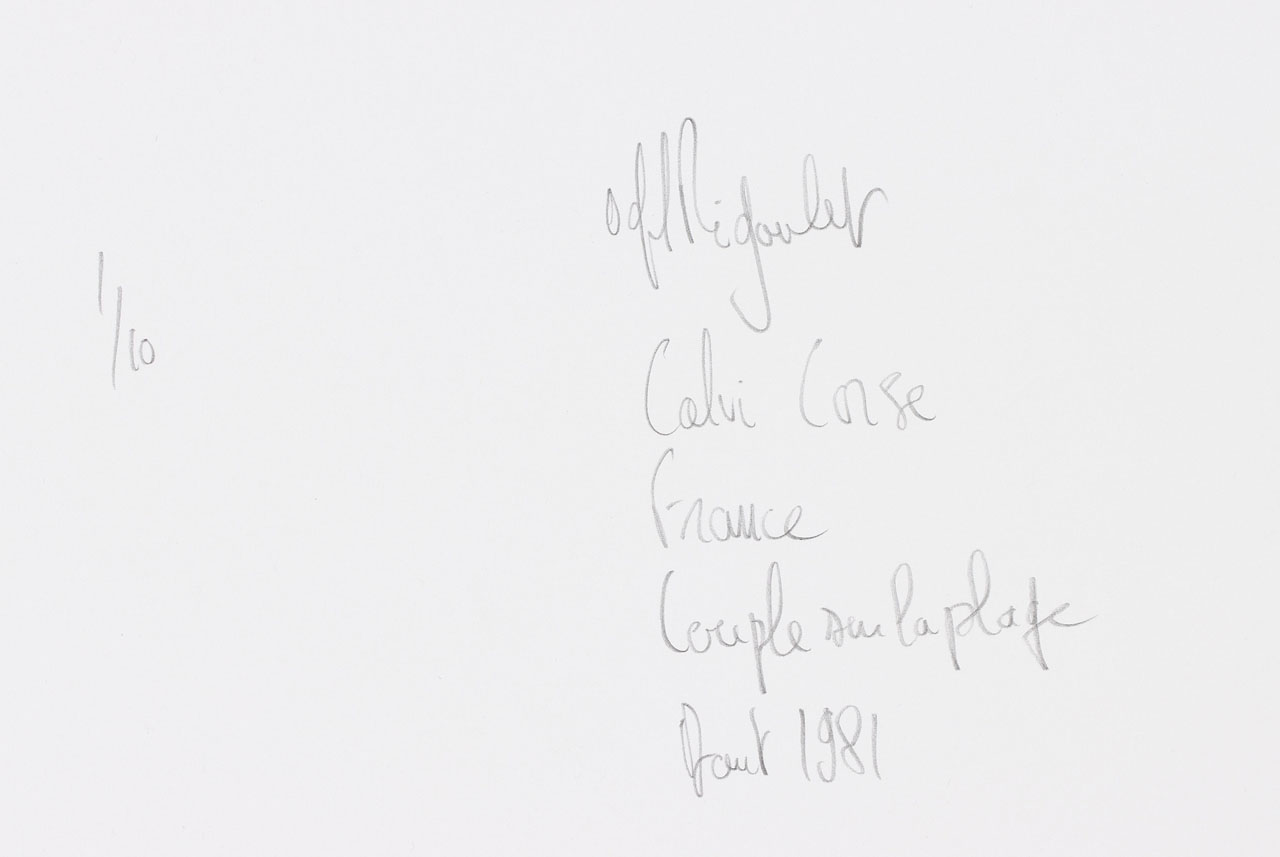 1/10
Calvi Corse
France
Couple sur la plage
Aout 1981